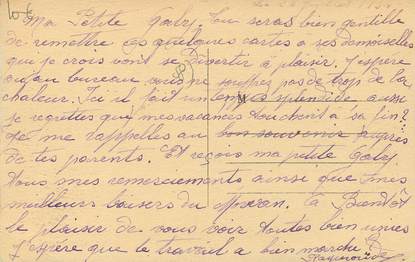 Ma Petite Gaby. Tu seras bien gentille
de remettre ces quelques cartes a ses demoiselles
qui je crois vont se divertir à plaisir. J'espère
qu'au bureau vous ne souffrez pas de trop de la
chaleur. Ici il fait un temps splendide aussi
je regrettes que mes vacances touchent à sa fin?
me rappelles au bon souvenir auprès
de tes parents. Et reçois ma petite Gaby
tous mes remerciements ainsi que mes
meilleurs baisers du Morvan. a Bientôt
le plaisir de vous voir toutes bien unies
j'espère que le travail a bien marché.
Raymonde